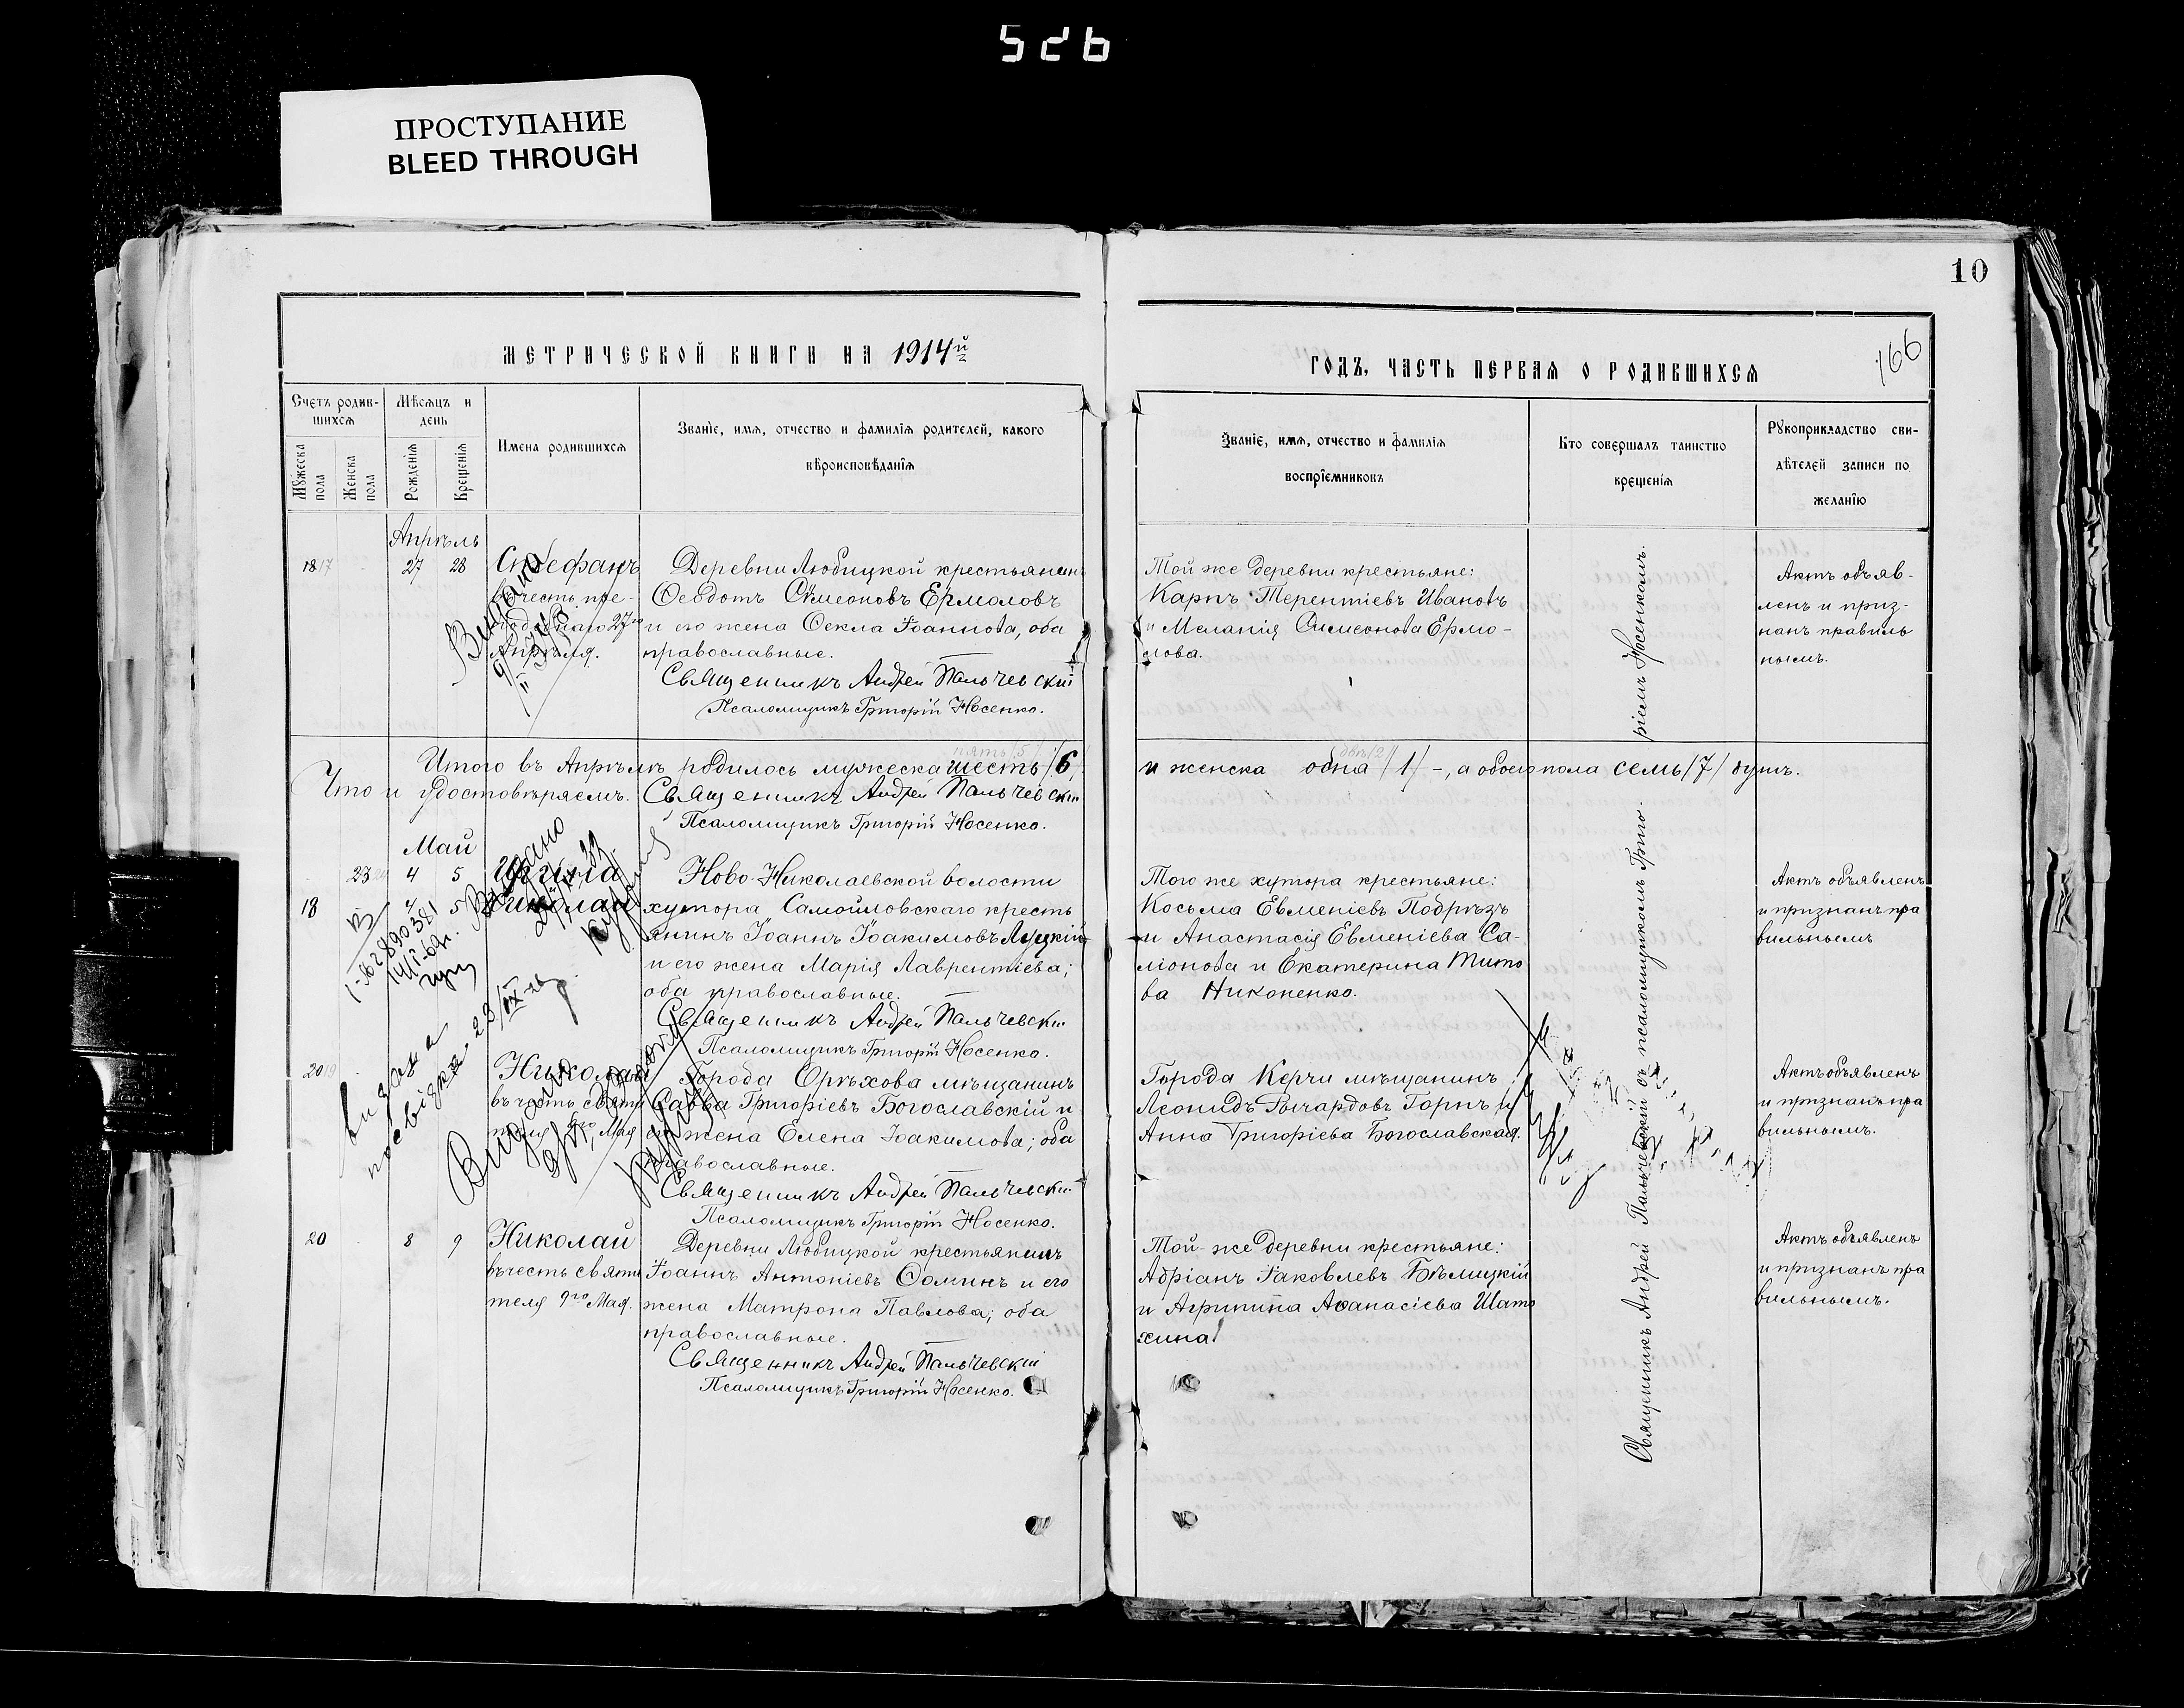 526
ПРОСТУПАНИЕ
BLEED THROUGH
10
166
МЕТРИЧЕСКОЙ КНИГИ НА 1914й
ГОДЪ, ЧАСТЬ ПЕРВАЯ О РОДИВШИХСЯ
Счетъ родив-
шихся
Мѣсяцъ и
день
Мужеска
пола
Женска
пола
Рожденія
Крещенія
Имена родившихся
Званіе, имя, отчество и фамилія родителей, какого
вѣроисповѣданія
Званіе, имя, отчество и фамилія
воспріемниковъ
Кто совершалъ таинство
крещенія
Рукоприкладство сви-
дѣтелей записи по
желанію
Апрѣль
18 17 27 28 Стефанъ
въ честь пре-
27го
Апрѣля.
Деревни Любицкой крестьянинъ
Ѳеодотъ Сѵмеоновъ Ермоловъ
и его жена Ѳекла Іоаннова, оба
православные.
Священникъ Андрей Пальчевскій
Псаломщикъ Григорій Носенко.
Той же деревни крестьяне:
Карпъ Терентіевъ Ивановъ
и Меланія Симеонова Ермо-
лова.
Актъ объяв-
ленъ и приз-
нанъ правиль
нымъ.
Итого въ Апрѣлѣ родилось мужеска шесть /6/
и женска одна /1/ -, а обоего пола семь /7/ душъ.
Что и удостовѣряемъ. Священникъ Андрей Пальчевскій
Псаломщикъ Григорій Носенко.
Май
23 4 5 Ирина
18 4 5 Николай
Ново-Николаевской волости
хутора Самойловскаго кресть
янинъ Іоаннъ Іоакимовъ Луцкій
и его жена Марія Лаврентіева;
оба православные.
Священникъ Андрей Пальчевскій
Псаломщикъ Григорій Носенко.
Того же хутора крестьяне:
Косьма Евменіевъ Подрѣзъ
и Анастасія Евменіева Са-
міонова и Екатерина Тито
ва Никоненко.
Актъ объявленъ
и признанъ пра
вильнымъ
20 19 Николай
въ честь святи
теля 9го Мая
Города Орѣхова мѣщанинъ
Савва Григоріевъ Богославскій и
его жена Елена Іоакимова; оба
православные.
Священникъ Андрей Пальчевскій
Псаломщикъ Григорій Носенко.
Города Керчи мѣщанинъ
Леонидъ Рычардовъ Горнъ и
Анна Григоріева Богославская.
Актъ объявленъ
и признанъ пра
вильнымъ.
20 8 9 Николай
въ честь святи
теля 9го Мая.
Деревни Любицкой крестьянинъ
Іоаннъ Антоніевъ Ѳоминъ и его
жена Матрона Павлова; оба
православные.
Священникъ Андрей Пальчевскій
Псаломщикъ Григорій Носенко.
Той-же деревни крестьяне:
Адріанъ Іаковлевъ Бѣлицкій
и Агрипина Аѳанасіева Шато
хина.
Актъ объявленъ
и признанъ пра
вильнымъ.
Священникъ Андрей Пальчевскій съ псаломщикомъ Григо-
ріемъ Носенкомъ.